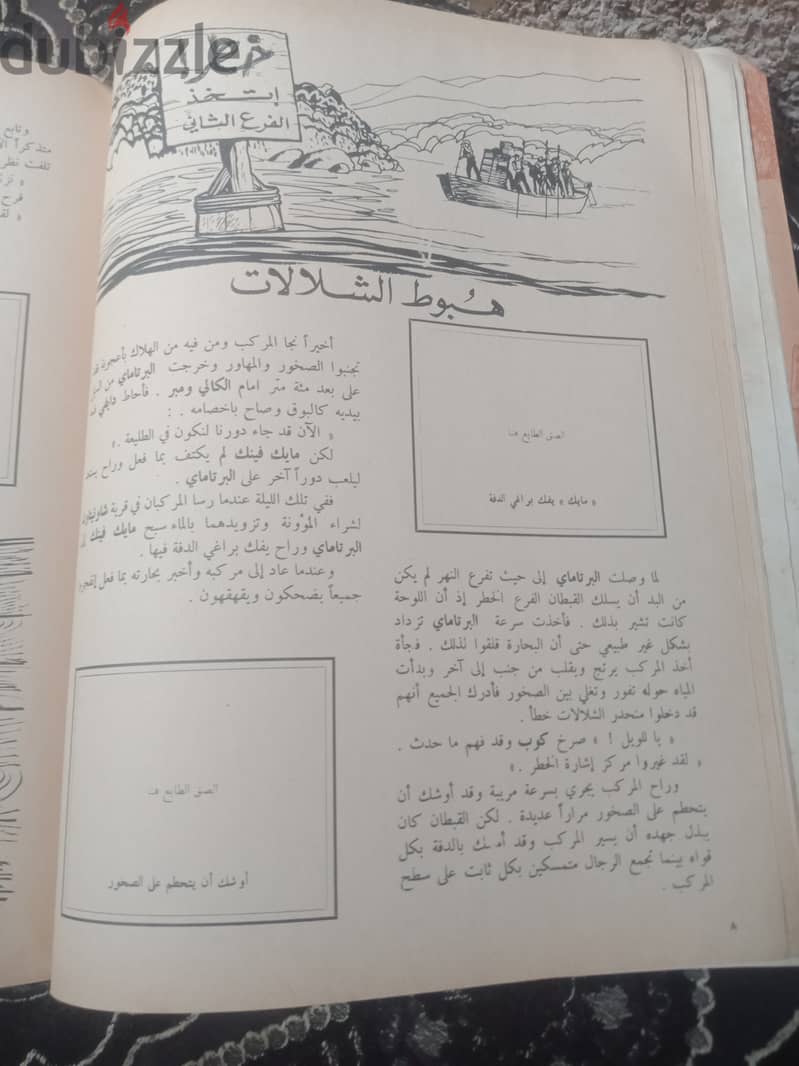 dubizzle
خطر
إتخذ
الفرع الثاني
هبوط الشلالات
الصق الطابع هنا
« مايك » يفك براغي الدفة
لما وصلت البرتاماي إلى حيث تفرع النهر لم يكن
من البد أن يسلك القبطان الفرع الخطر إذ أن اللوحة
كانت تشير بذلك . فأخذت سرعة البرتاماي تزداد
بشكل غير طبيعي حتى أن البحارة قلقوا لذلك . فجأة
أخذ المركب يرتج ويقلب من جنب إلى آخر وبدأت
المياه حوله تفور وتغلي بين الصخور فأدرك الجميع أنهم
قد دخلوا منحدر الشلالات خطأ .
« يا للويل ! » صرخ كوب وقد فهم ما حدث .
« لقد غيروا مركز إشارة الخطر . »
وراح المركب يجري بسرعة مريبة وقد أوشك أن
يتحطم على الصخور مراراً عديدة . لكن القبطان كان
يبذل جهده أن يسير المركب وقد أمسك بالدفة بكل
قواه بينما تجمع الرجال متمسكين بكل ثابت على سطح
المركب .
أخيراً نجا المركب ومن فيه من الهلاك بأعجوبة
تجنبوا الصخور والمهاور وخرجت البرتاماي من
على بعد مئة متر امام الكالي ومبر . فأحاط
بيديه كالبوق وصاح باخصامه . :
« الآن قد جاء دورنا لنكون في الطليعة . »
لكن مايك فينك لم يكتف بما فعل وراح
ليلعب دوراً آخر على البرتاماي .
ففي تلك الليلة عندما رسا المركبان في قرية
لشراء المؤونة وتزويدهما بالماء سبح مايك فينك
البرتاماي وراح يفك براغي الدفة فيها .
وعندما عاد إلى مركبه وأخبر بحارته بما فعل
جميعاً يضحكون ويقهقهون .
الصق الطابع هنا
أوشك أن يتحطم على الصخور
٨
وتابع
تلفت نظر